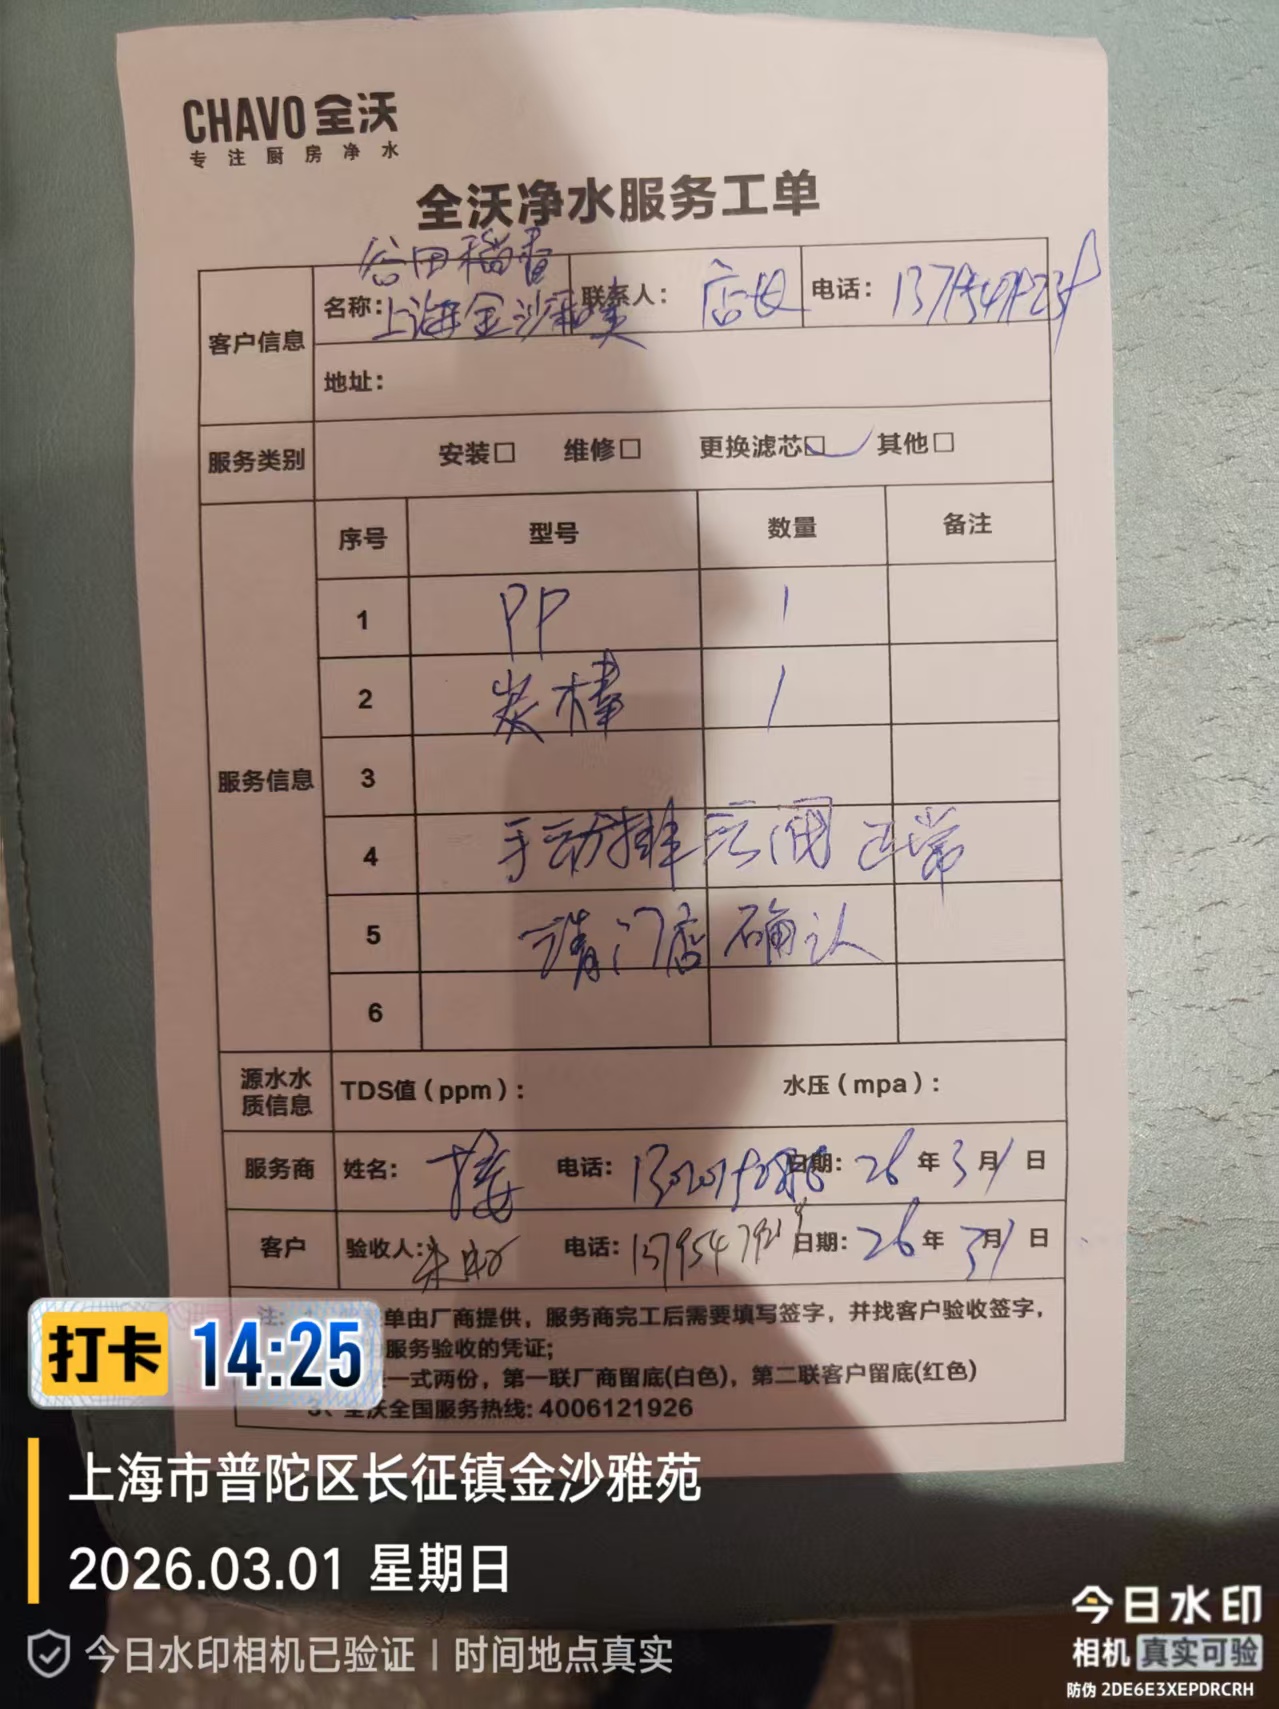 CHAVO 全沃
专注厨房净水
全沃净水服务工单
谷田稻香
客户信息 名称: 上海金沙和美 联系人: 店长 电话:
地址:
服务类别 安装□ 维修□ 更换滤芯☑ 其他□
服务信息 序号 型号 数量 备注
1 PP 1
2 炭棒 1
3
4 手动排 阀 正常
5 请门店确认
6
源水水质信息 TDS值(ppm): 水压(mpa):
服务商 姓名: 电话: 日期: 26年3月1日
客户 验收人: 电话: 日期: 26年3月1日
注: 单由厂商提供，服务商完工后需要填写签字，并找客户验收签字，
服务验收的凭证;
一式两份，第一联厂商留底(白色)，第二联客户留底(红色)
3、全沃全国服务热线: 4006121926
打卡 14:25
上海市普陀区长征镇金沙雅苑
2026.03.01 星期日
今日水印相机已验证 | 时间地点真实
今日水印
相机 真实可验
防伪 2DE6E3XEPDRCRH